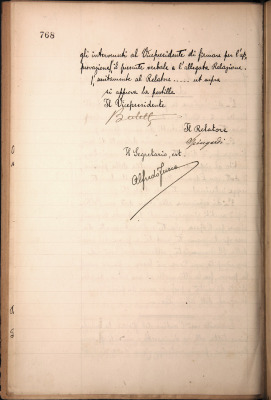 768
gli intervenuti al Vicepresidente di firmare per l'ap
provazione il presente verbale e l'allegata Relazione.
unitamente al Relatore ..... ut supra
si approva la postilla
Il Vicepresidente
Il Relatore
Il Segretario, int.
Alfredo